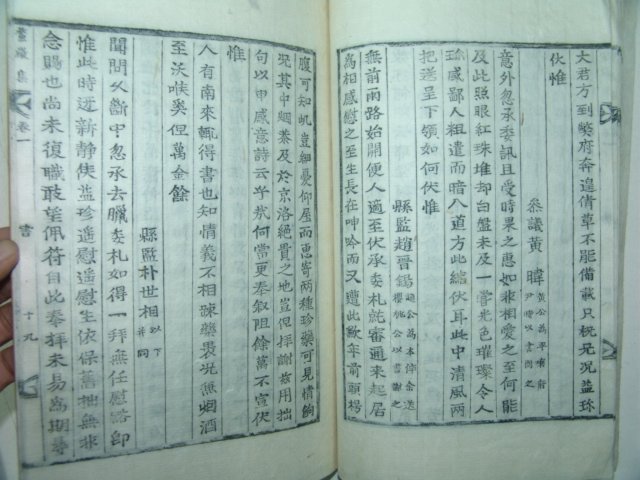 大君方到榮府奔遑倩草不能備載只祝兄況益珍
伏惟
叅議黃 暐
意外忽承委訊且受時果之惠如非相愛之至何能
及此照眼紅珠堆却白盤未及一嘗光色璀璨令人
珍感鄙人粗遣而暗八道方此縮伏耳此中清風兩
把送呈下領如何伏惟
縣監趙晉錫
無前雨路始開便人適至伏承委札就審通來起居
爲相感慰之至生長在呻吟而又遭此歉年前頭楊
腹可知吼豈細憂仰屋而惠寄兩種珍藥可見情餉
況其中烟茶及於京洛絶貴之地豈但拜謝玆用拙
句以申感意詩云乎㢤何當更奉叙阻餘萬不宣伏
惟
人有南來輒得書也知情義不相疎藥裹况無烟酒
至沃喉奚但萬金餘
縣監朴世相 以下
聞問久斷中忽承去臘委札如得一拜無任慰浩卽
惟此時迓新靜俠益珍遥慰遥慰生依保舊拙無非
念賜也尚未復職敢望佩符自此奉拜未易爲期尋
蘆溪集
卷一
書
十九